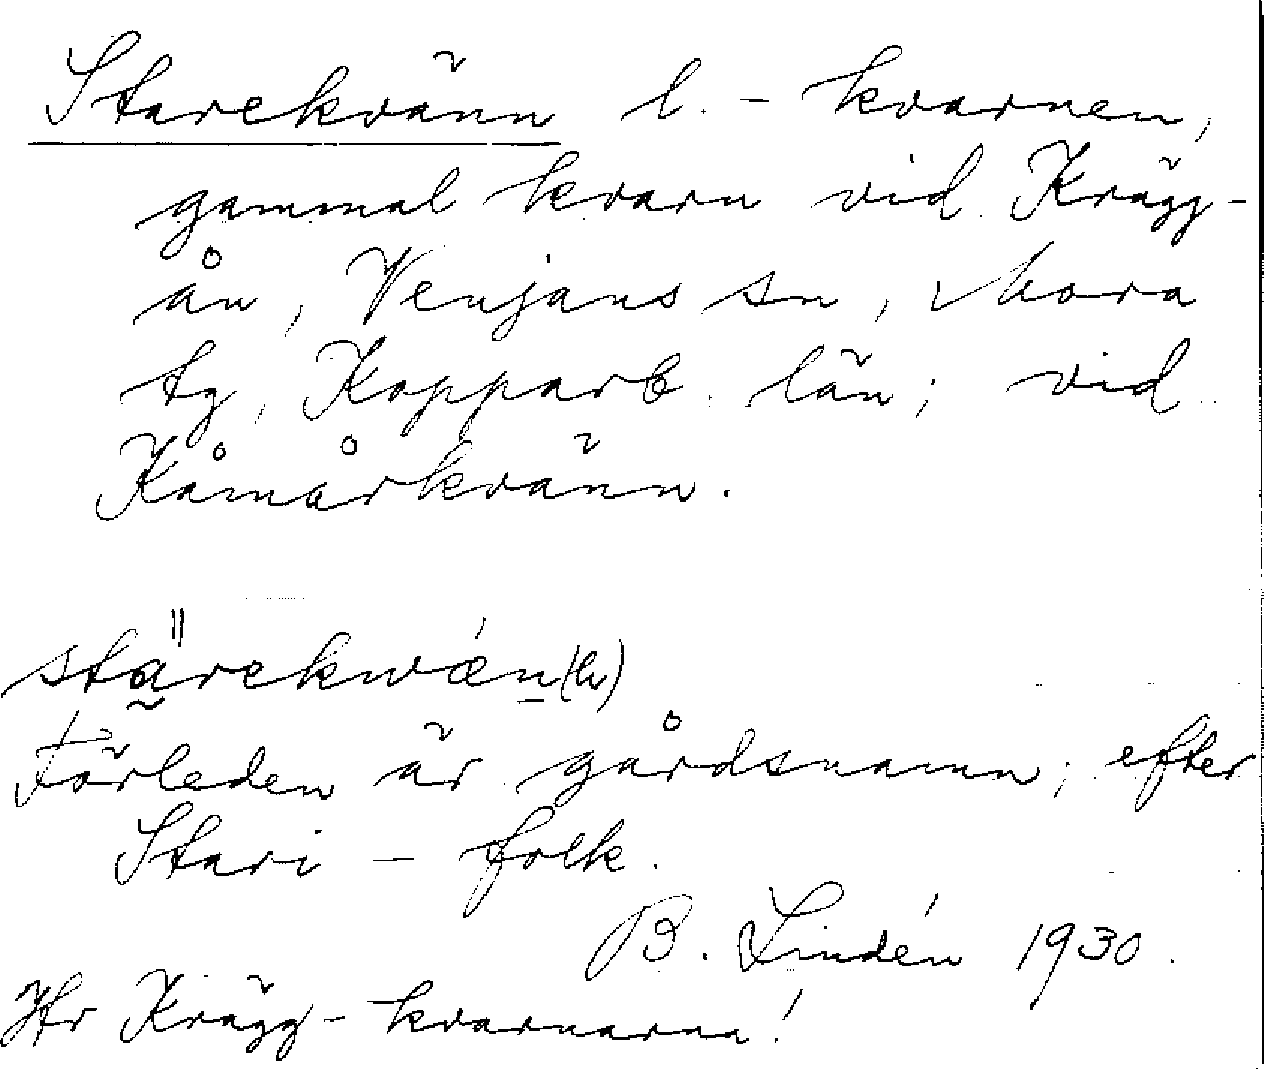 Starekvänn l. - kvarnen,
gammal kvarn vid Krägg-
ån, Venjans sn, Mora
tg, Kopparb. län; vid
Kåmårkvänn.
stärekwǽn(h)
Förleden är gårdsnamn; efter
Stari - folk.
B. Lindén 1930.
Jfr Krägg-kvarnarna!